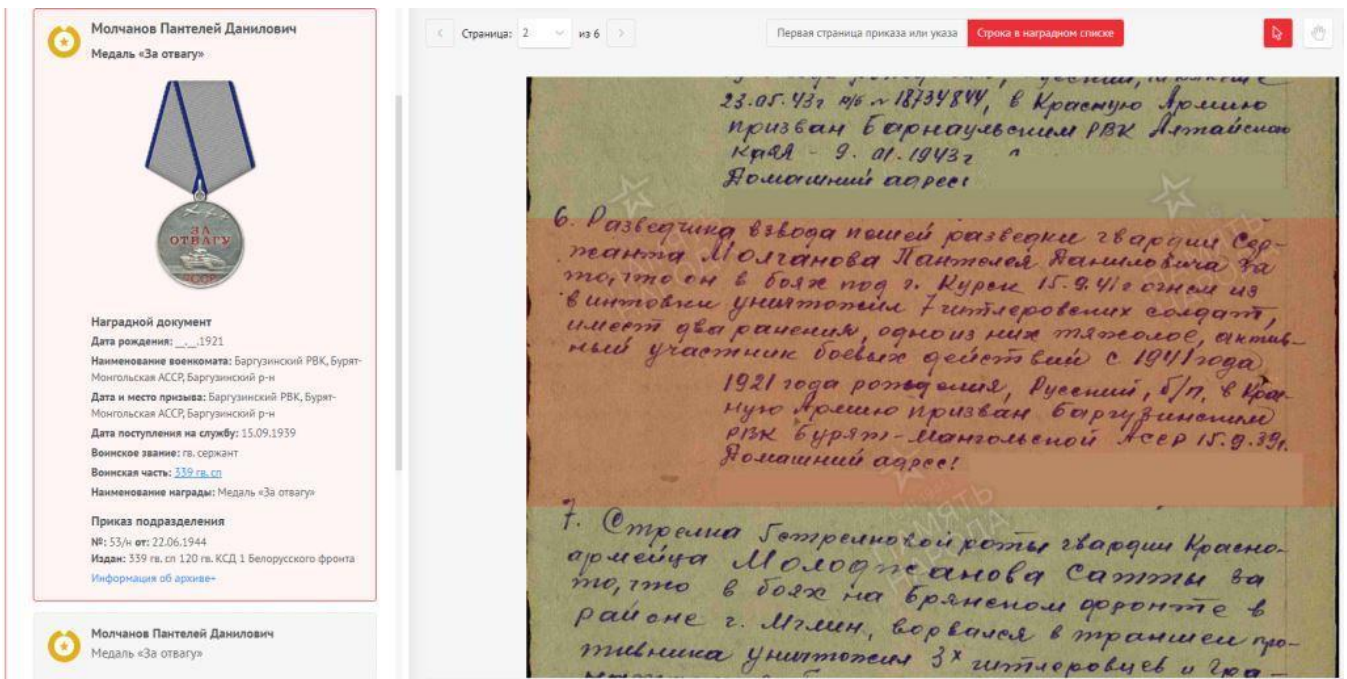 Молчанов Пантелей Данилович
Медаль «За отвагу»
ЗА
ОТВАГУ
СССР
Наградной документ
Дата рождения: __.__.1921
Наименование военкомата: Баргузинский РВК, Бурят-
Монгольская АССР, Баргузинский р-н
Дата и место призыва: Баргузинский РВК, Бурят-
Монгольская АССР, Баргузинский р-н
Дата поступления на службу: 15.09.1939
Воинское звание: гв. сержант
Воинская часть: 339 гв. сп
Наименование награды: Медаль «За отвагу»
Приказ подразделения
№: 53/н от: 22.06.1944
Издан: 339 гв. сп 120 гв. КСД 1 Белорусского фронта
Информация об архиве+
Молчанов Пантелей Данилович
Медаль «За отвагу»
Страница: 2 из 6
Первая страница приказа или указа Строка в наградном списке
23.05.43г п/б №18734844, в Красную Армию
призван Барнаульским РВК Алтайского
края - 9.01.1943г
Домашний адрес:
6. Разведчика взвода пешей разведки гвардии Сер-
жанта Молчанова Пантелея Даниловича за
то, что он в боях под г. Курск 15.9.41г огнем из
винтовки уничтожил 7 гитлеровских солдат,
имеет два ранения, одно из них тяжолое, актив-
ный участник боевых действий с 1941 года
1921 года рождения, Русский, б/п, в Крас-
ную Армию призван Баргузинским
РВК Бурят-Мангольской АССР 15.9.39г.
Домашний адрес:
7. Стрелка стрелковой роты гвардии Красно-
армейца Молоджанова Сатты за
то, что в боях на Брянском фронте в
районе г. Мглин, ворвался в траншеи про-
тивника уничтожил 3х гитлеровцев и
ПАМЯТЬ
НАРОДА